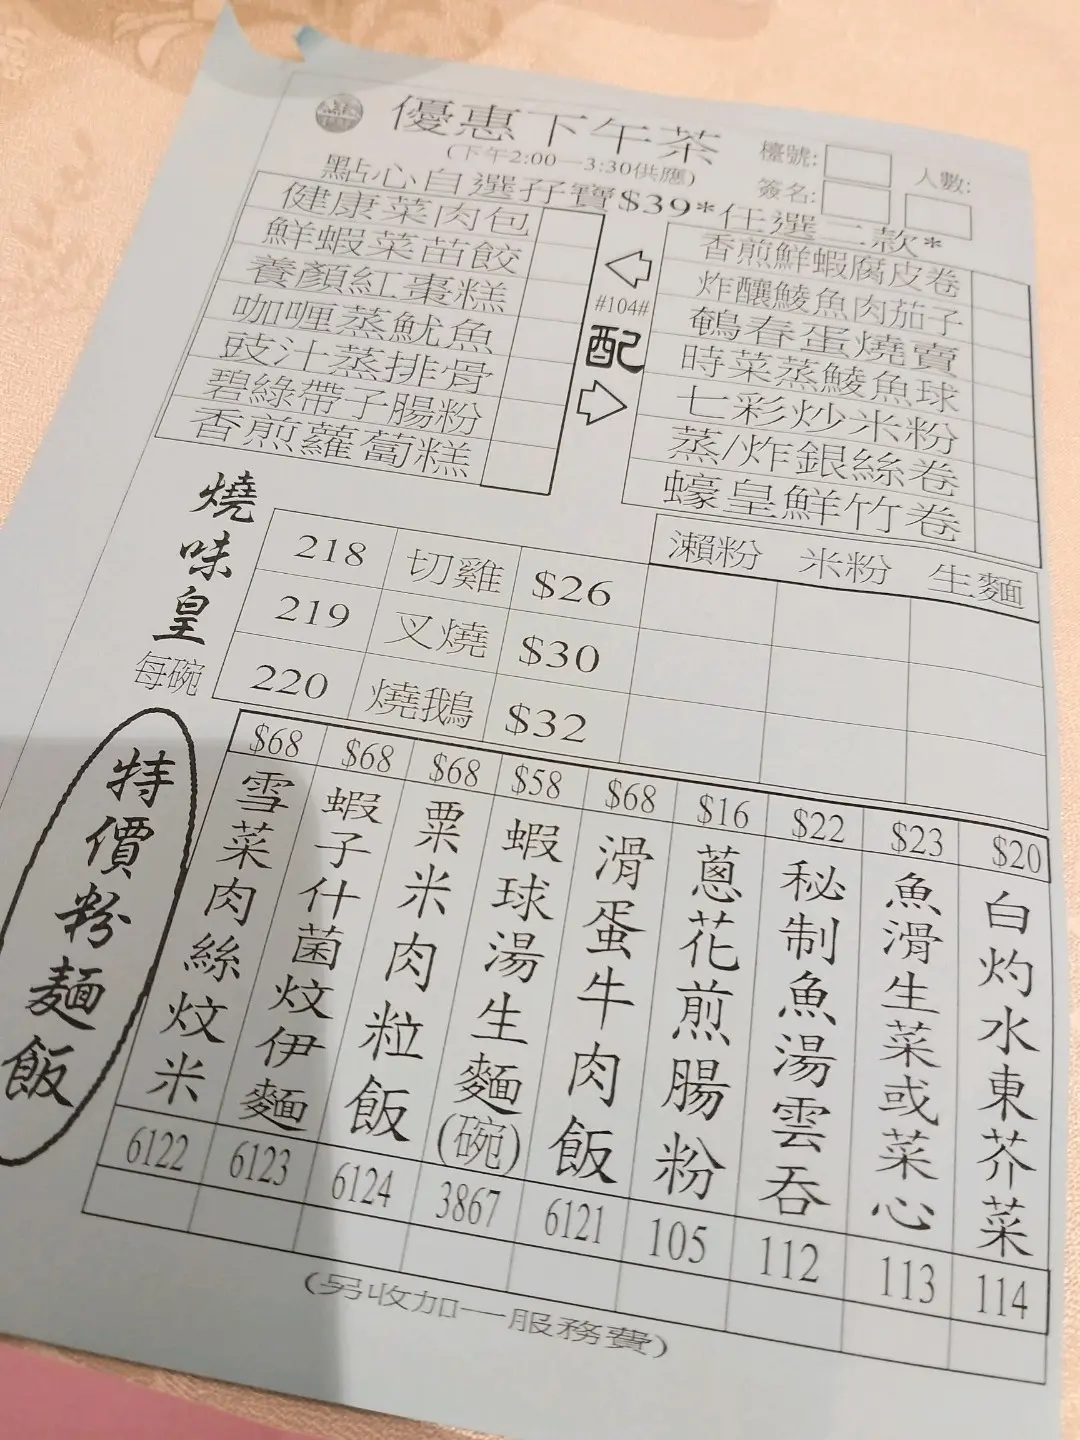 優惠下午茶
(下午2:00—3:30供應)
檯號:
人數:
簽名:
點心自選孖寶$39*任選二款*
健康菜肉包
鮮蝦菜苗餃
養顏紅棗糕
咖喱蒸魷魚
豉汁蒸排骨
碧綠帶子腸粉
香煎蘿蔔糕
#104#
配
香煎鮮蝦腐皮卷
炸釀鯪魚肉茄子
鵪春蛋燒賣
時菜蒸鯪魚球
七彩炒米粉
蒸/炸銀絲卷
蠔皇鮮竹卷
燒味皇
每碗
瀨粉 米粉 生麵
218 切雞 $26
219 叉燒 $30
220 燒鵝 $32
特價粉麵飯
$68 $68 $68 $58 $68 $16 $22 $23 $20
雪菜肉絲炆米
蝦子什菌炆伊麵
粟米肉粒飯
蝦球湯生麵(碗)
滑蛋牛肉飯
蔥花煎腸粉
秘制魚湯雲吞
魚滑生菜或菜心
白灼水東芥菜
6122 6123 6124 3867 6121 105 112 113 114
(另收加一服務費)